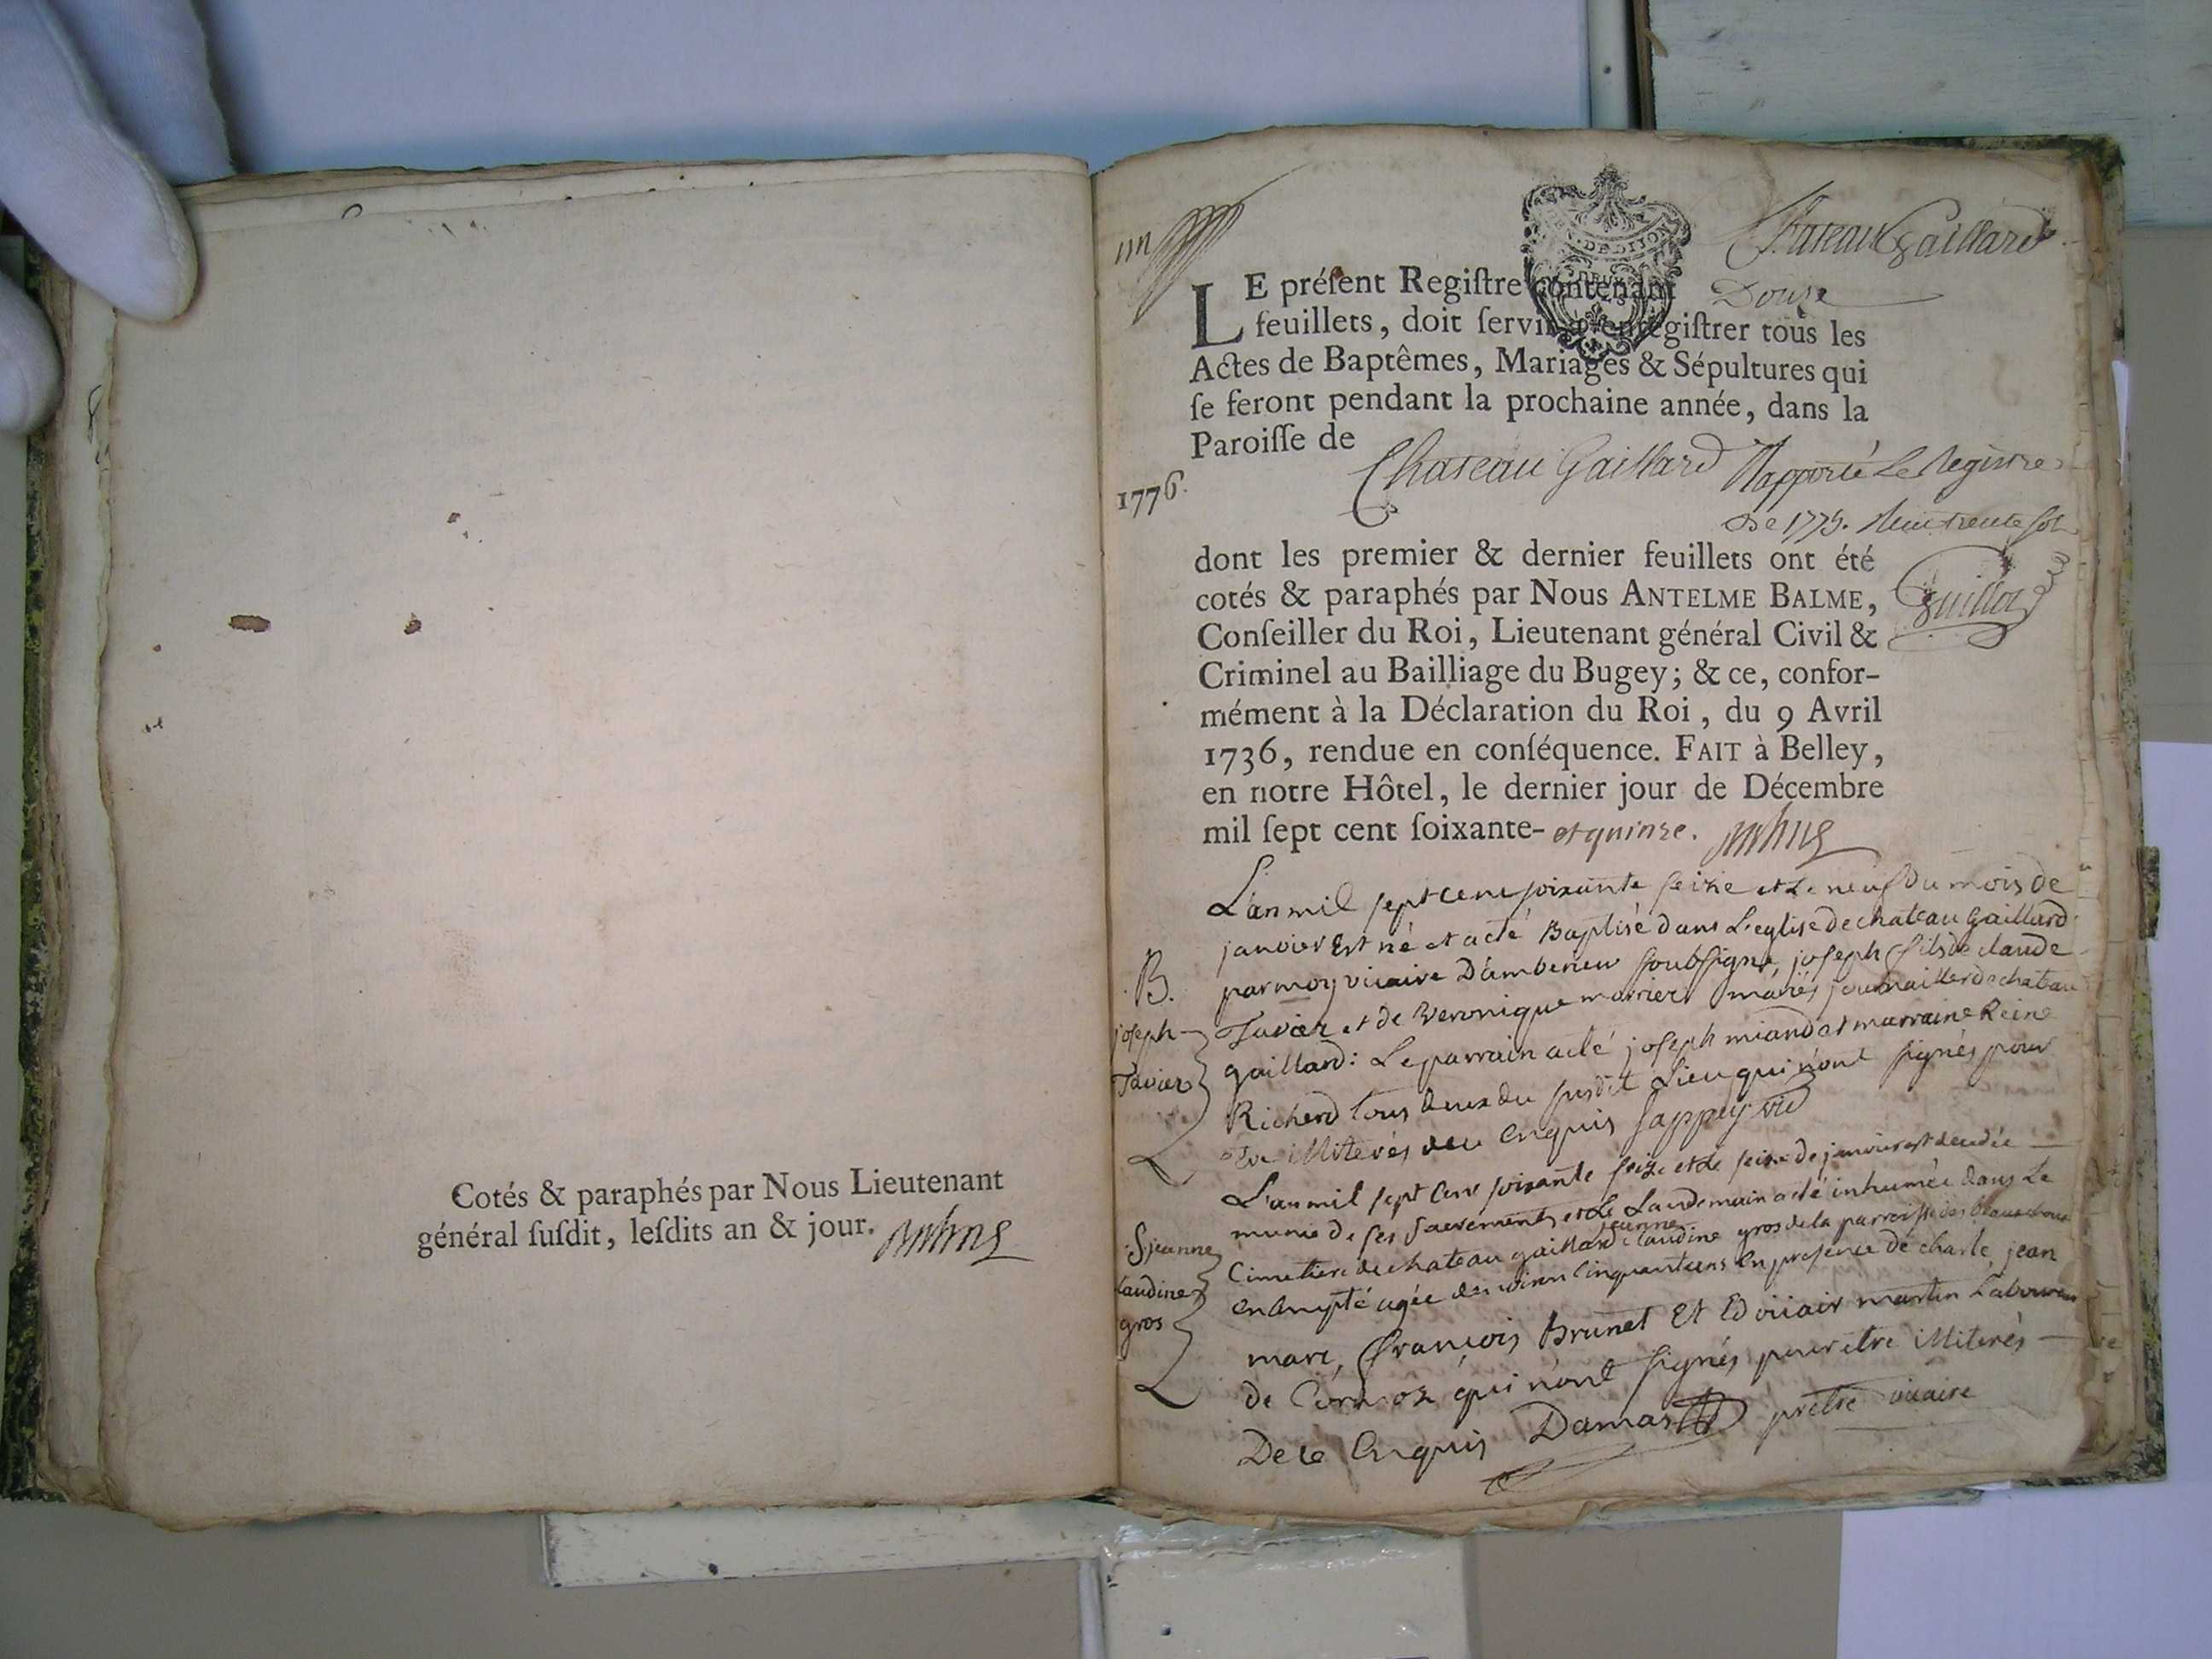 Cotés & paraphés par Nous Lieutenant
général ſuſdit, leſdits an & jour.
un
Chateau Gaillard
GEN. DE DIJON
LE préſent Regiſtre contenant Douze
feuillets, doit ſervir à enregiſtrer tous les
Actes de Baptêmes, Mariages & Sépultures qui
ſe feront pendant la prochaine année, dans la
Paroiſſe de
Chateau Gaillard Rapporté Le Registre
1776.
De 1775.
dont les premier & dernier feuillets ont été
cotés & paraphés par Nous ANTELME BALME,
Guillot
Conſeiller du Roi, Lieutenant général Civil &
Criminel au Bailliage du Bugey; & ce, confor-
mément à la Déclaration du Roi, du 9 Avril
1736, rendue en conſéquence. FAIT à Belley,
en notre Hôtel, le dernier jour de Décembre
mil ſept cent ſoixante- et quinze.
L'an mil sept cent soixante seize et Le neuf du mois de
janvier Est né et a eté Baptisé dans L'eglise de chateau Gaillard
par moy vicaire D'amberieu soubsigné, joseph fils de claude
Tavier et de Veronique morrier mariés journaillers de chateau
gaillard: Le parrain a eté joseph miand et marraine Reine
Richerd tous deux du susdit Lieu qui n'ont signés pour
etre illiterés de ce enquis Sappey vic
B.
joseph
Tavier
L'an mil sept cent soixante seize et Le seize de janvier est decedée
munie de ses sacrements et Le Landemain a eté inhumée dans Le
Cimetiere de chateau gaillard jeanne claudine gros de la parroisse des
en agée d'environ cinquante ans En presence de charle, jean
marc, François Brunet Et Edoüair martin Laboureur
de Cormoz qui n'ont signés pour etre illiterés
De ce Enquis Damas prêtre vicaire
S. jeanne
claudine
gros